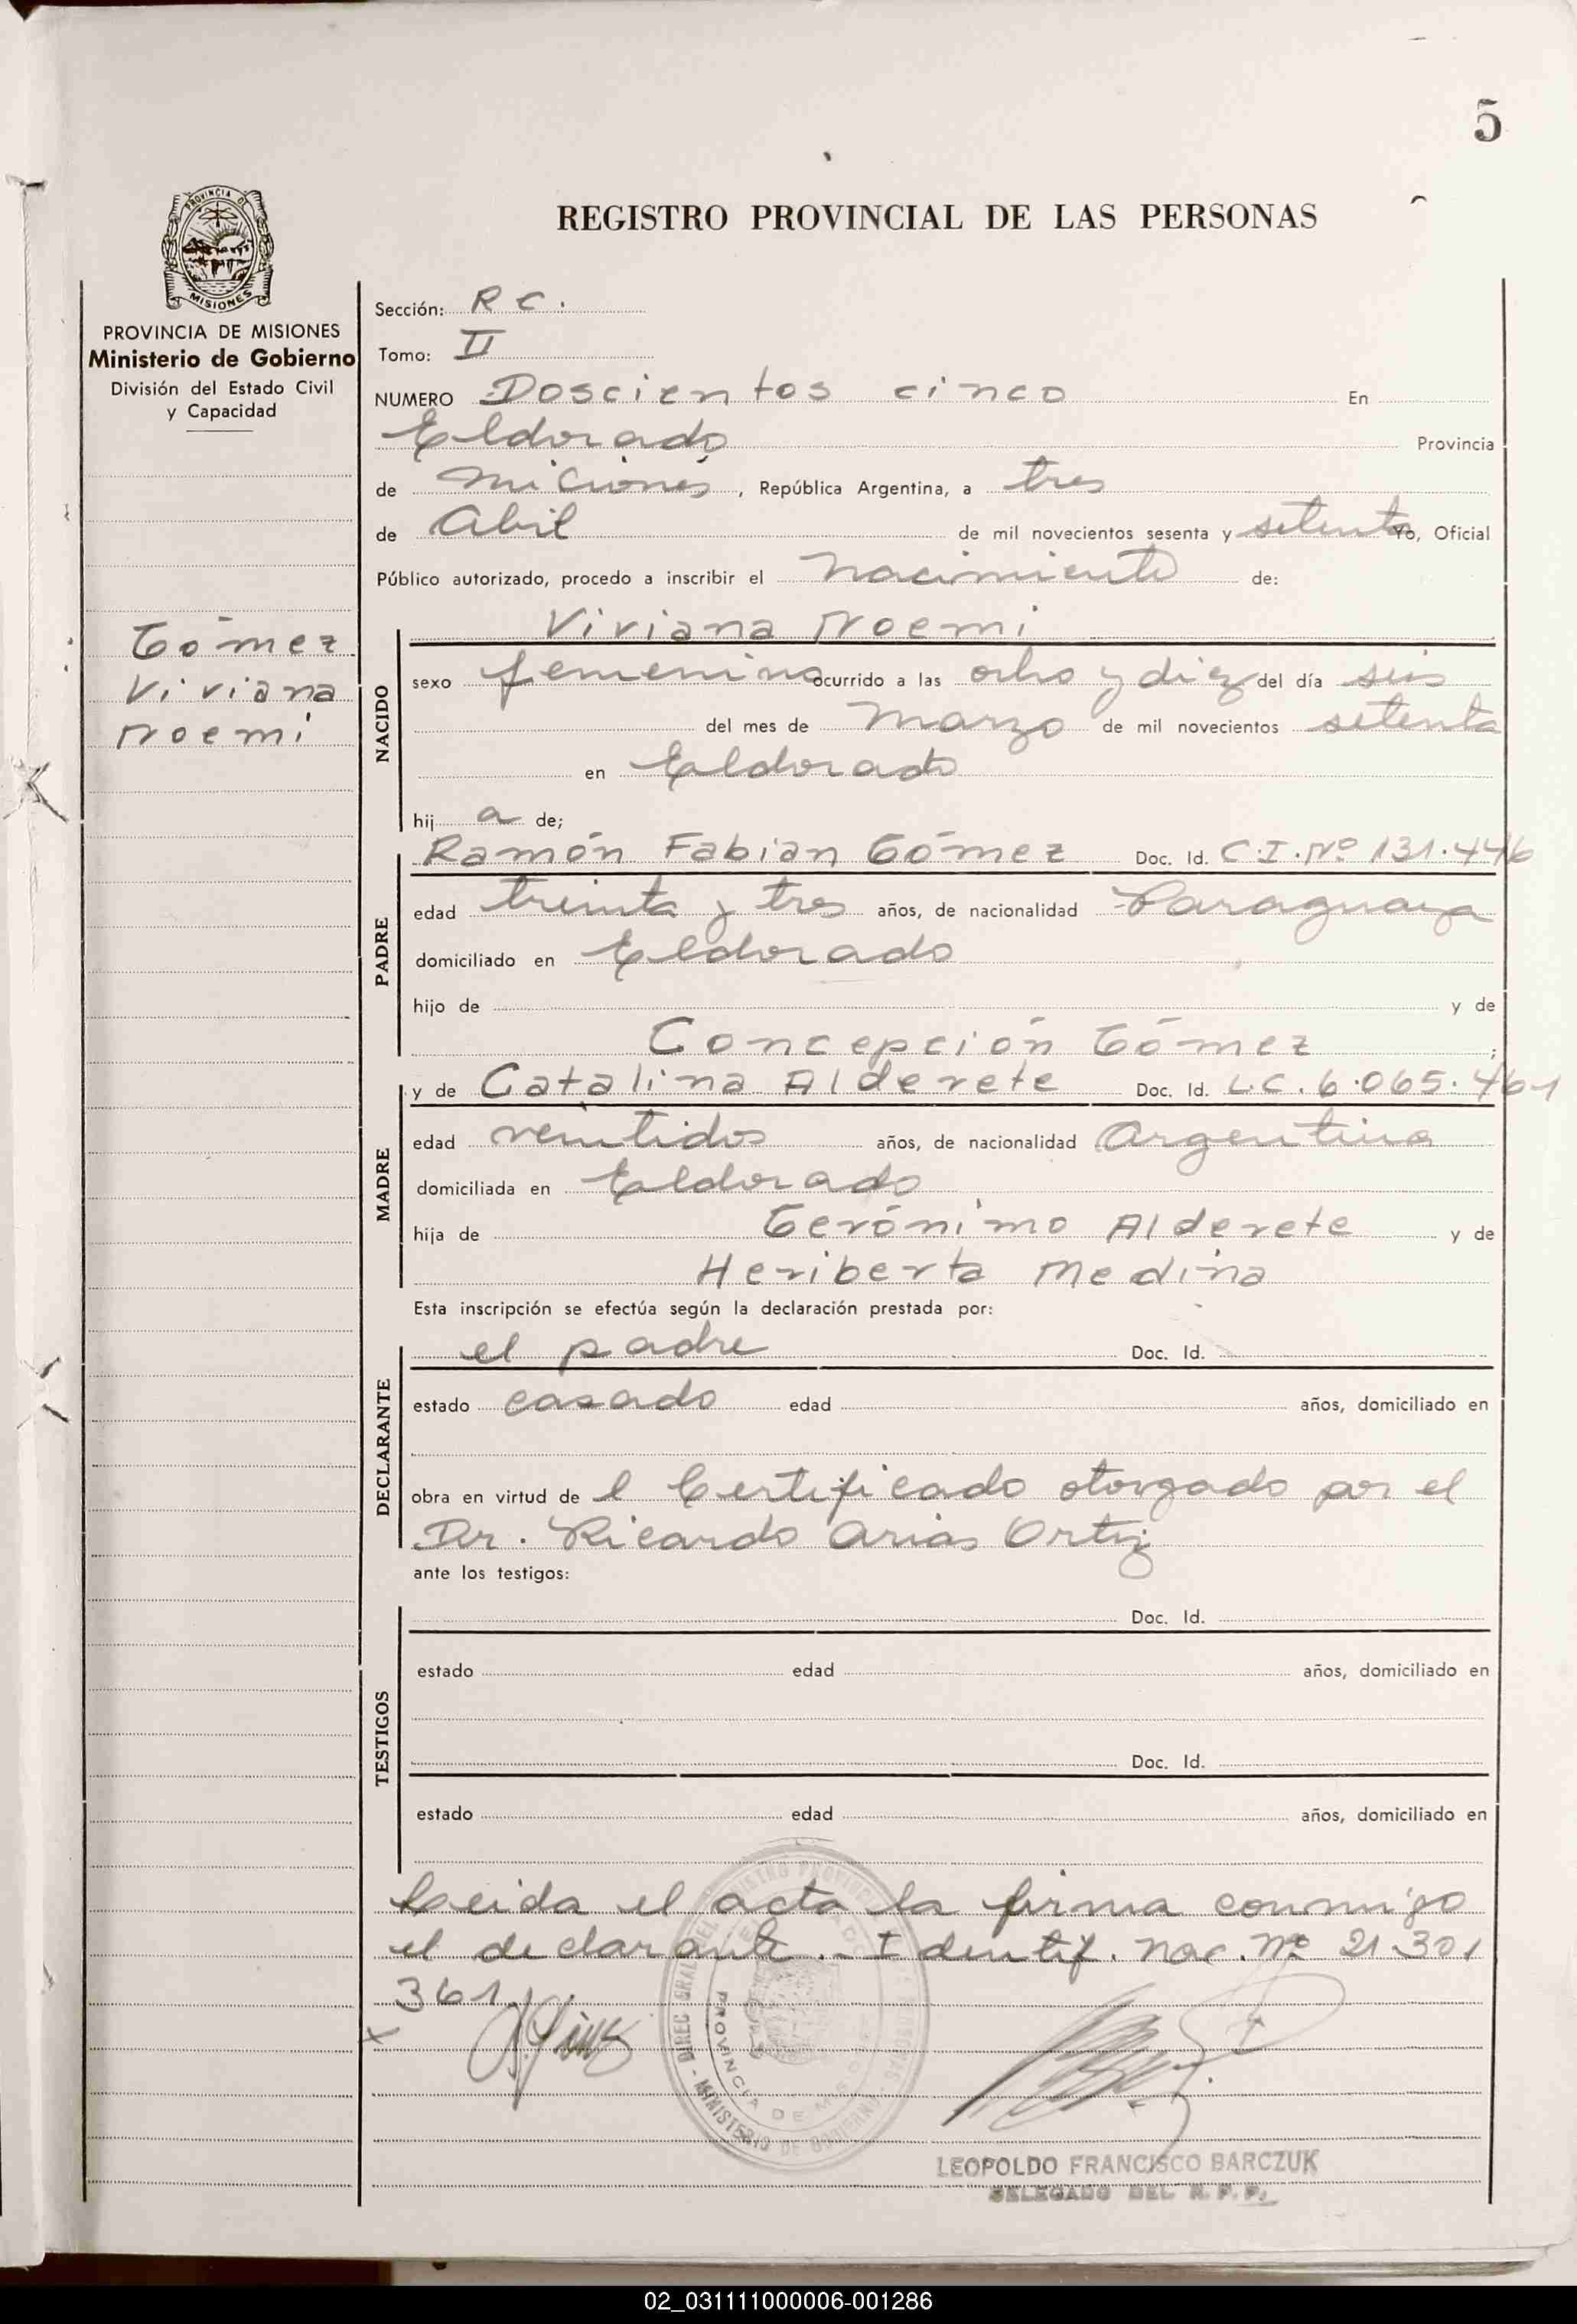 5
PROVINCIA DE
MISIONES
REGISTRO PROVINCIAL DE LAS PERSONAS
PROVINCIA DE MISIONES
Ministerio de Gobierno
División del Estado Civil
y Capacidad
Gómez
Viviana
Noemi
Sección: R C.
Tomo: II
NUMERO Doscientos cinco En
Eldorado Provincia
de Miciones, República Argentina, a tres
de Abil de mil novecientos sesenta y setenta Yo, Oficial
Público autorizado, procedo a inscribir el nacimiento de:
NACIDO
Viviana Noemi
sexo femenino ocurrido a las ocho y diez del día seis
del mes de marzo de mil novecientos setenta
en Eldorado
hij a de;
PADRE
Ramón Fabian Gómez Doc. Id. C.I.Nº 131.446
edad treinta y tres años, de nacionalidad Paraguaya
domiciliado en Eldorado
hijo de y de
Concepción Gómez ;
MADRE
y de Catalina Alderete Doc. Id. L.C. 6.065.461
edad ventidos años, de nacionalidad Argentina
domiciliada en Eldorado
hija de Gerónimo Alderete y de
Heriberta Medina
Esta inscripción se efectúa según la declaración prestada por:
DECLARANTE
el padre Doc. Id.
estado casado edad años, domiciliado en
obra en virtud de l Certificado otorgado por el
Dr. Ricardo Arias Ortiz
ante los testigos:
TESTIGOS
Doc. Id.
estado edad años, domiciliado en
Doc. Id.
estado edad años, domiciliado en
Leida el acta la firma conmigo
el declarante.- Identif. nac. Nº 21.301
361
LEOPOLDO FRANCISCO BARCZUK
DELEGADO DEL R. P. P.
02_031111000006-001286